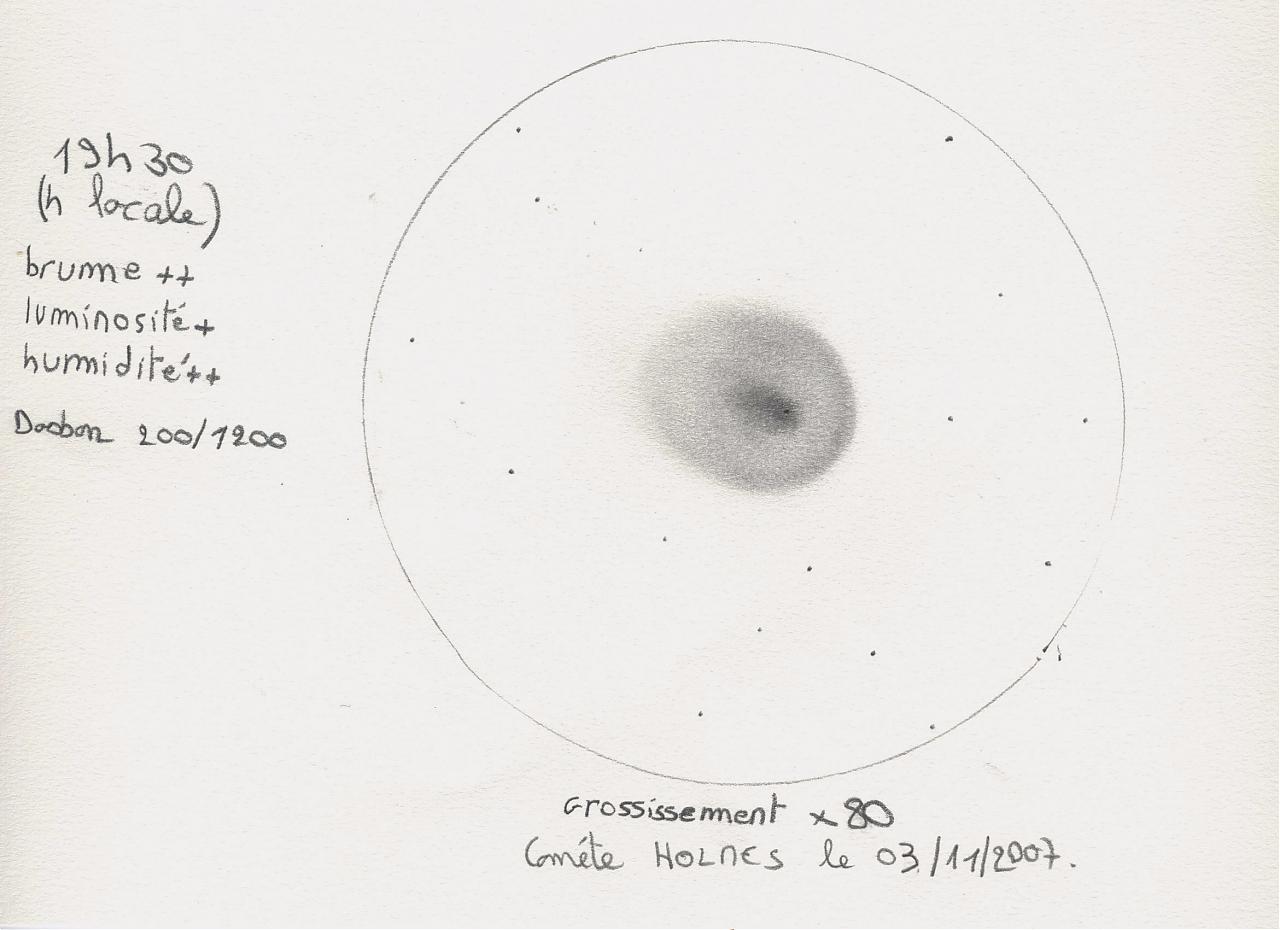 19h30
(h locale)
brume ++
luminosité+
humidité++
Dobson 200/1200
Grossissement x 80
Comète HOLMES le 03/11/2007.